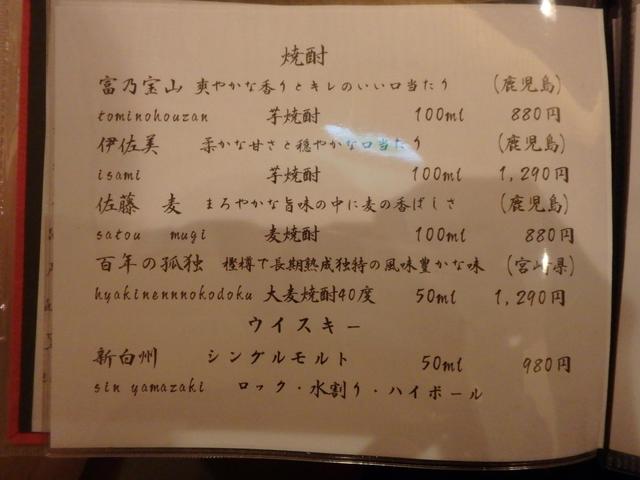 焼酎
富乃宝山 爽やかな香りとキレのいい口当たり (鹿児島)
tominohouzan 芋焼酎 100ml 880円
伊佐美 柔かな甘さと穏やかな口当たり (鹿児島)
isami 芋焼酎 100ml 1,290円
佐藤 麦 まろやかな旨味の中に麦の香ばしさ (鹿児島)
satou mugi 麦焼酎 100ml 880円
百年の孤独 樫樽で長期熟成独特の風味豊かな味 (宮崎県)
hyakinennnokodoku 大麦焼酎40度 50ml 1,290円
ウイスキー
新白州 シングルモルト 50ml 980円
sin yamazaki ロック・水割り・ハイボール